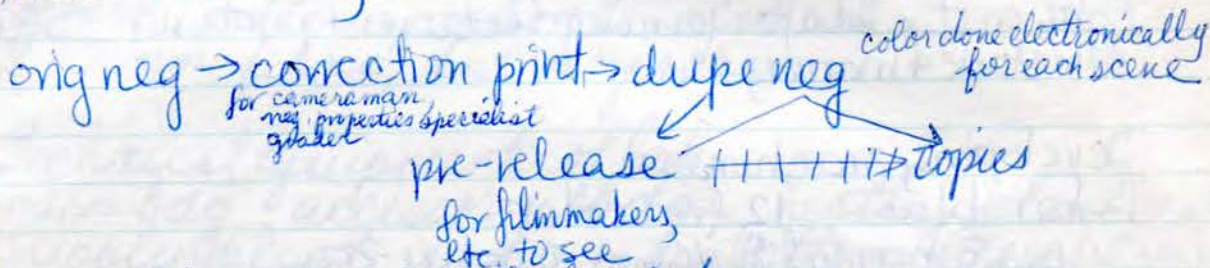 orig neg → correction print → dupe neg
color done electronically
for each scene
for cameraman,
neg. properties specialist
grader
pre-release → copies
for filmmakers,
etc. to see